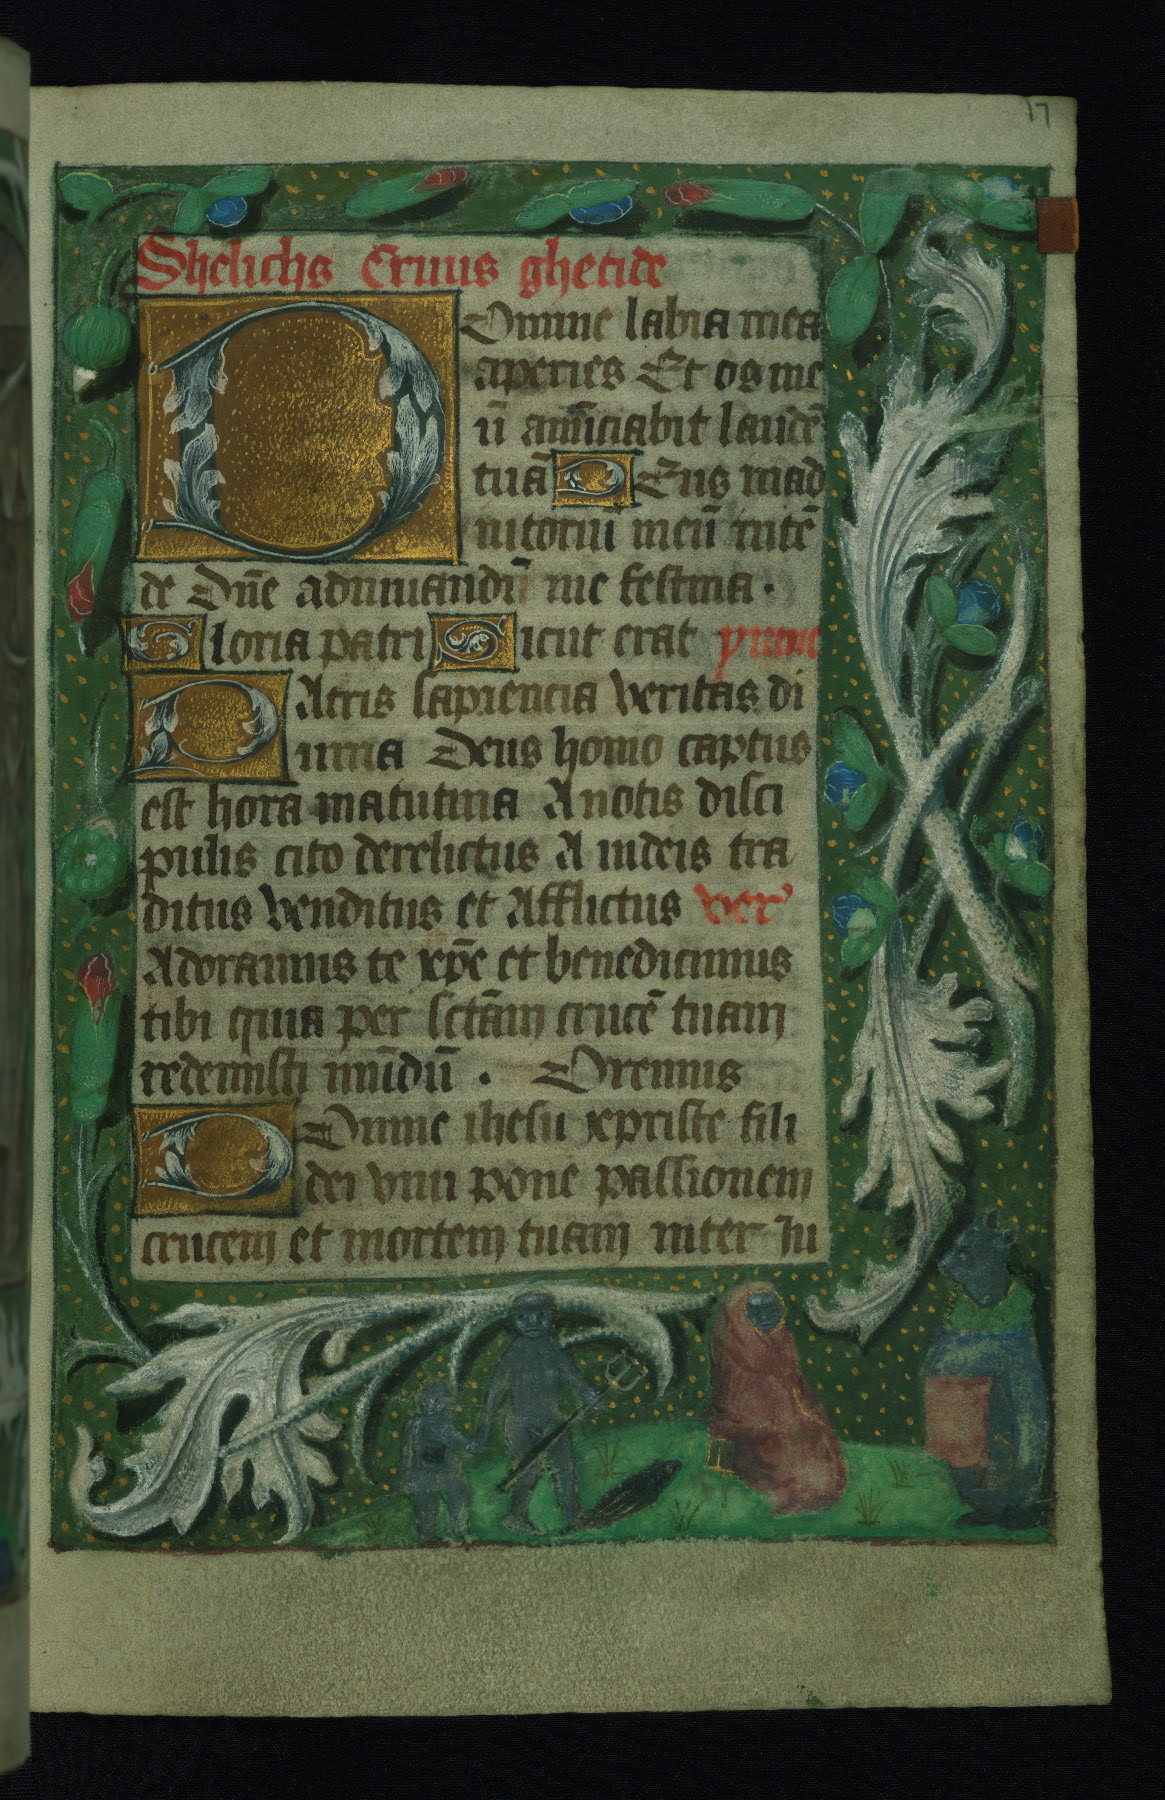 17
Shelichs Cruus ghetide
Domine labia mea
aperies Et os me
ū anūciabit laudē
tuā Deus in ad
iutoriū meū intē
de Dn̄e adiuuandū me festina .
Gloria patri Sicut erat
Patris sapiencia veritas di
uina Deus homo captus
est hora matutina A notis disci
pulis cito derelictus A iudeis tra
ditus venditus et Afflictus ver
Adoramus te xp̄e et benedicimus
tibi quia per sctām crucē tuam
redemisti mūdū . Oremus
Domine ihesu xpriste fili
dei viui pone passionem
crucem et mortem tuam inter Iu